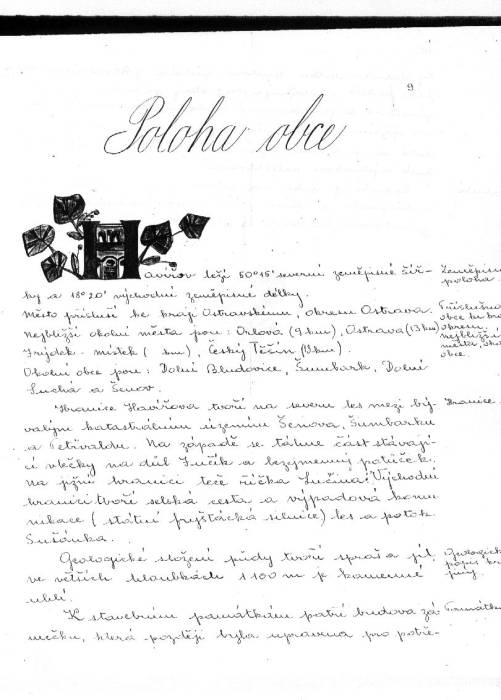 9
Poloha obce
Havířov leží 50°15' severní zeměpisné šíř-
ky a 18°20' východní zeměpisné délky.
Zeměpisná
poloha.
Město přísluší ke kraji Ostravskému, okresu Ostrava.
Nejbližší okolní města jsou: Orlová (9 km), Ostrava (13 km)
Frýdek-místek ( km), Český Těšín (19 km).
Okolní obce jsou: Dolní Bludovice, Šumbark, Dolní
Suchá a Šenov.
obce ke kra
okresu
nejbližší
města, oko
obce.
Hranice Havířova tvoří na severu les mezi bý-
valým katastrálním územím Šenova, Šumbarku
a Petřvaldu. Na západě se táhne část stávají-
cí vlečky na důl Sučík a bezejmenný potůček.
Na jižní hranici teče říčka Lučina. Východní
hranici tvoří selská cesta a výpadová komu
nikace (státní fryštácká silnice) les a potok
Sušanka.
Hranice.
Geologické složení půdy tvoří spraš a jíl
ve větších hloubkách 1100 m je kamenné
uhlí.
Geologick
popis kr
K stavebním památkám patří budova zá-
mečku, která později byla upravena pro potře-
Památk